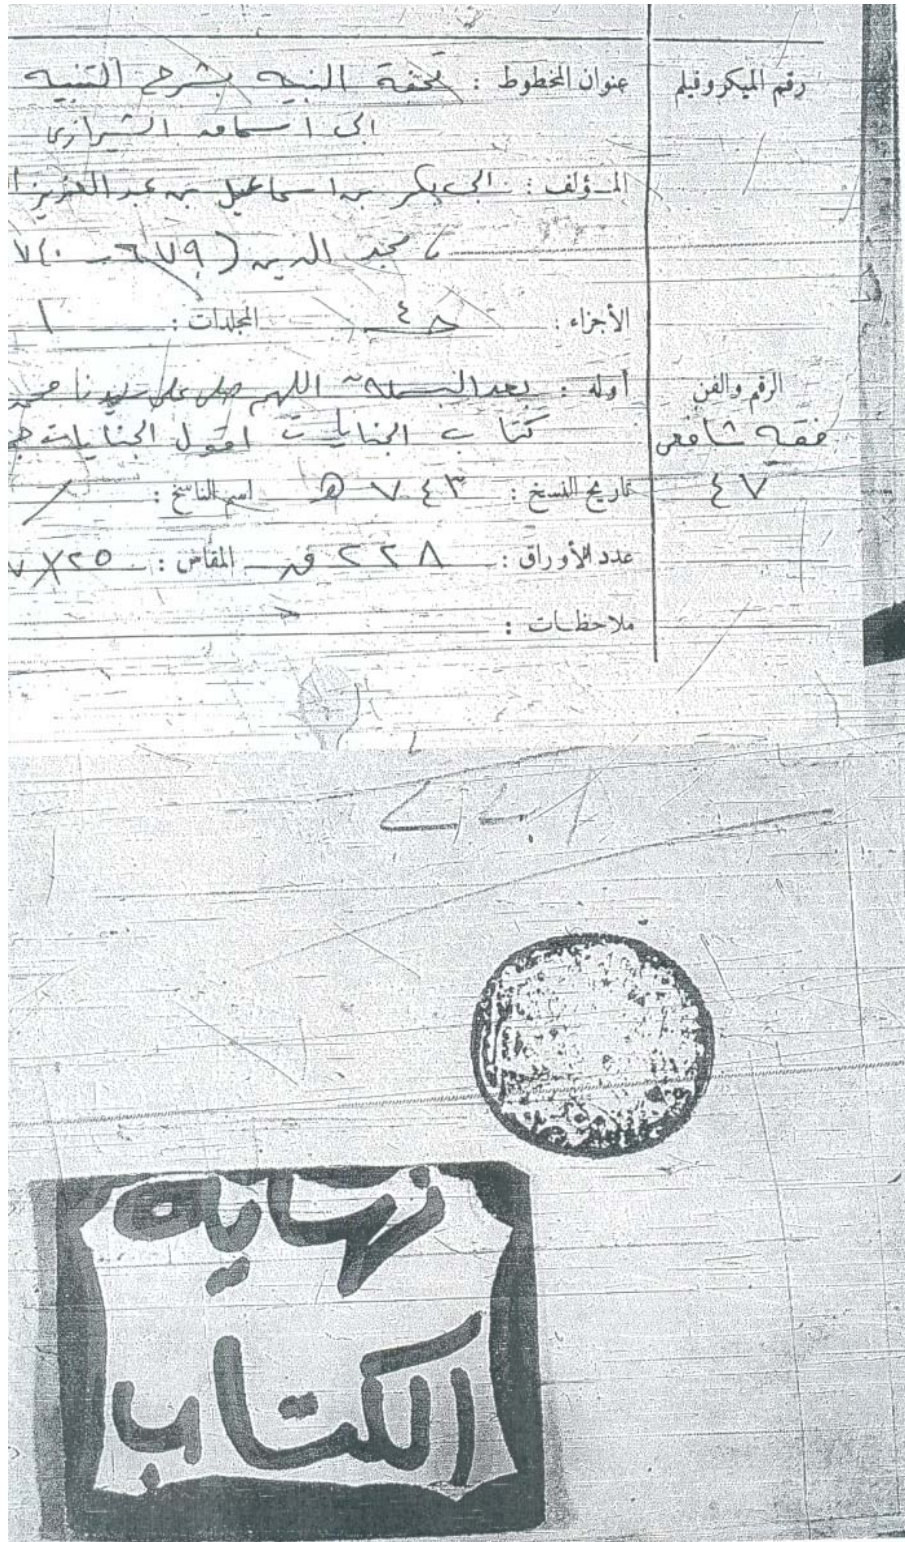 رقم الميكروفيلم
عنوان المخطوط : تحفة النبيه بشرح التنبيه
اسحاق الشيرازى
المؤلف : ابى بكر بن اسماعيل بن عبد العزيز
مجد الدين (٦٧٩ -
الأجزاء : حـ ٤ المجلدات : ١
الرقم والفن
فقه شافعى
٤٧
أوله : بعد البسملة اللهم صل على سيدنا
كتاب الجنايات اقول الجنايات
تاريخ النسخ : ٧٤٣ هـ اسم الناسخ : /
عدد الأوراق : ٢٢٨ ق المقاس : ٢٥×
ملاحظات :
نهاية
الكتاب